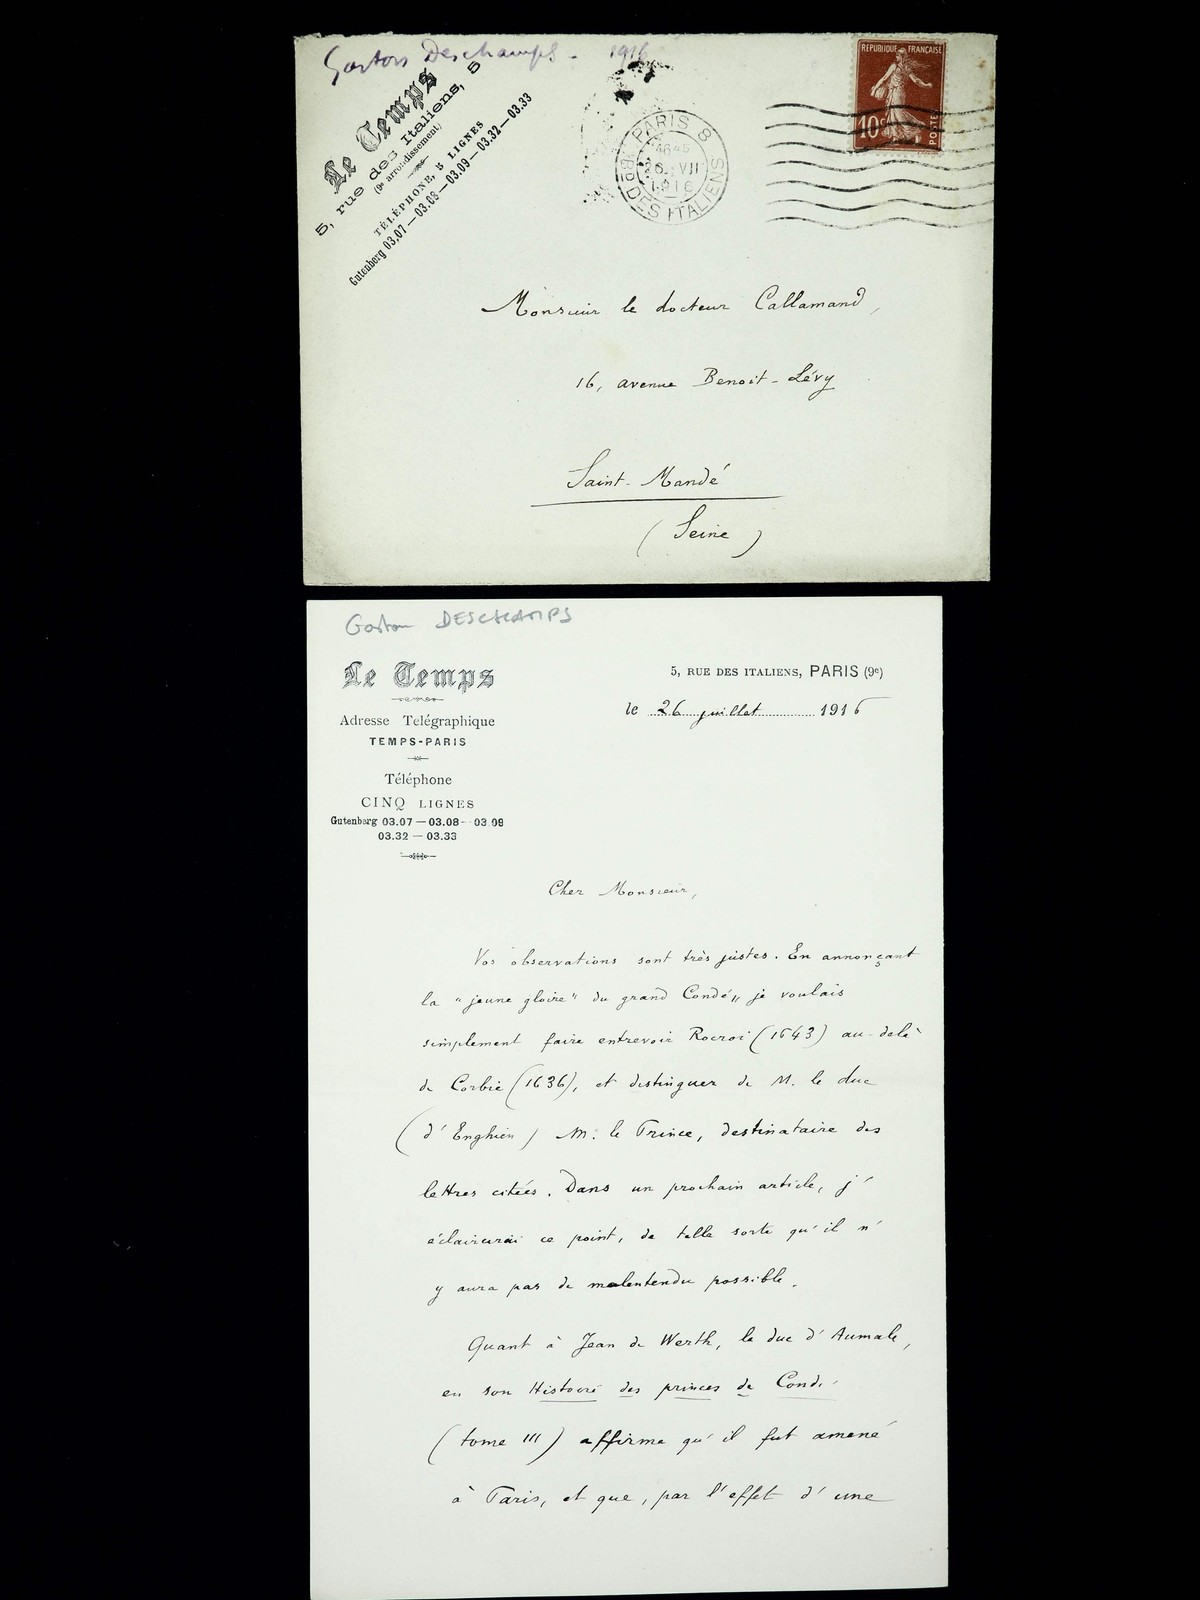 Gaston Deschamps - 1916
Le Temps
5, rue des Italiens, 5
(9e arrondissement)
TÉLÉPHONE, 5 LIGNES
Gutenberg 03.07 — 03.08 — 03.09 — 03.32 — 03.33
PARIS 8
16 45
26 · VII
1916
BD DES ITALIENS
REPUBLIQUE FRANÇAISE
10c
POSTES
Monsieur le docteur Callamand,
16, avenue Benoit-Lévy
Saint-Mandé
(Seine)
Gaston DESCHAMPS
Le Temps
5, RUE DES ITALIENS, PARIS (9e)
le 26 juillet 1916
Adresse Telégraphique
TEMPS-PARIS
Téléphone
CINQ LIGNES
Gutenberg 03.07 — 03.08 - 03.09
03.32 — 03.33
Cher Monsieur,
Vos observations sont très justes. En annonçant
la "jeune gloire" du grand Condé, je voulais
simplement faire entrevoir Rocroi (1643) au-delà
de Corbie (1636), et distinguer de M. le duc
(d'Enghien) M. le Prince, destinataire des
lettres citées. Dans un prochain article, j'
éclaircirai ce point, de telle sorte qu'il n'
y aura pas de malentendu possible.
Quant à Jean de Werth, le duc d'Aumale,
en son Histoire des princes de Condé
(tome III) affirme qu'il fut amené
à Paris, et que, par l'effet d'une